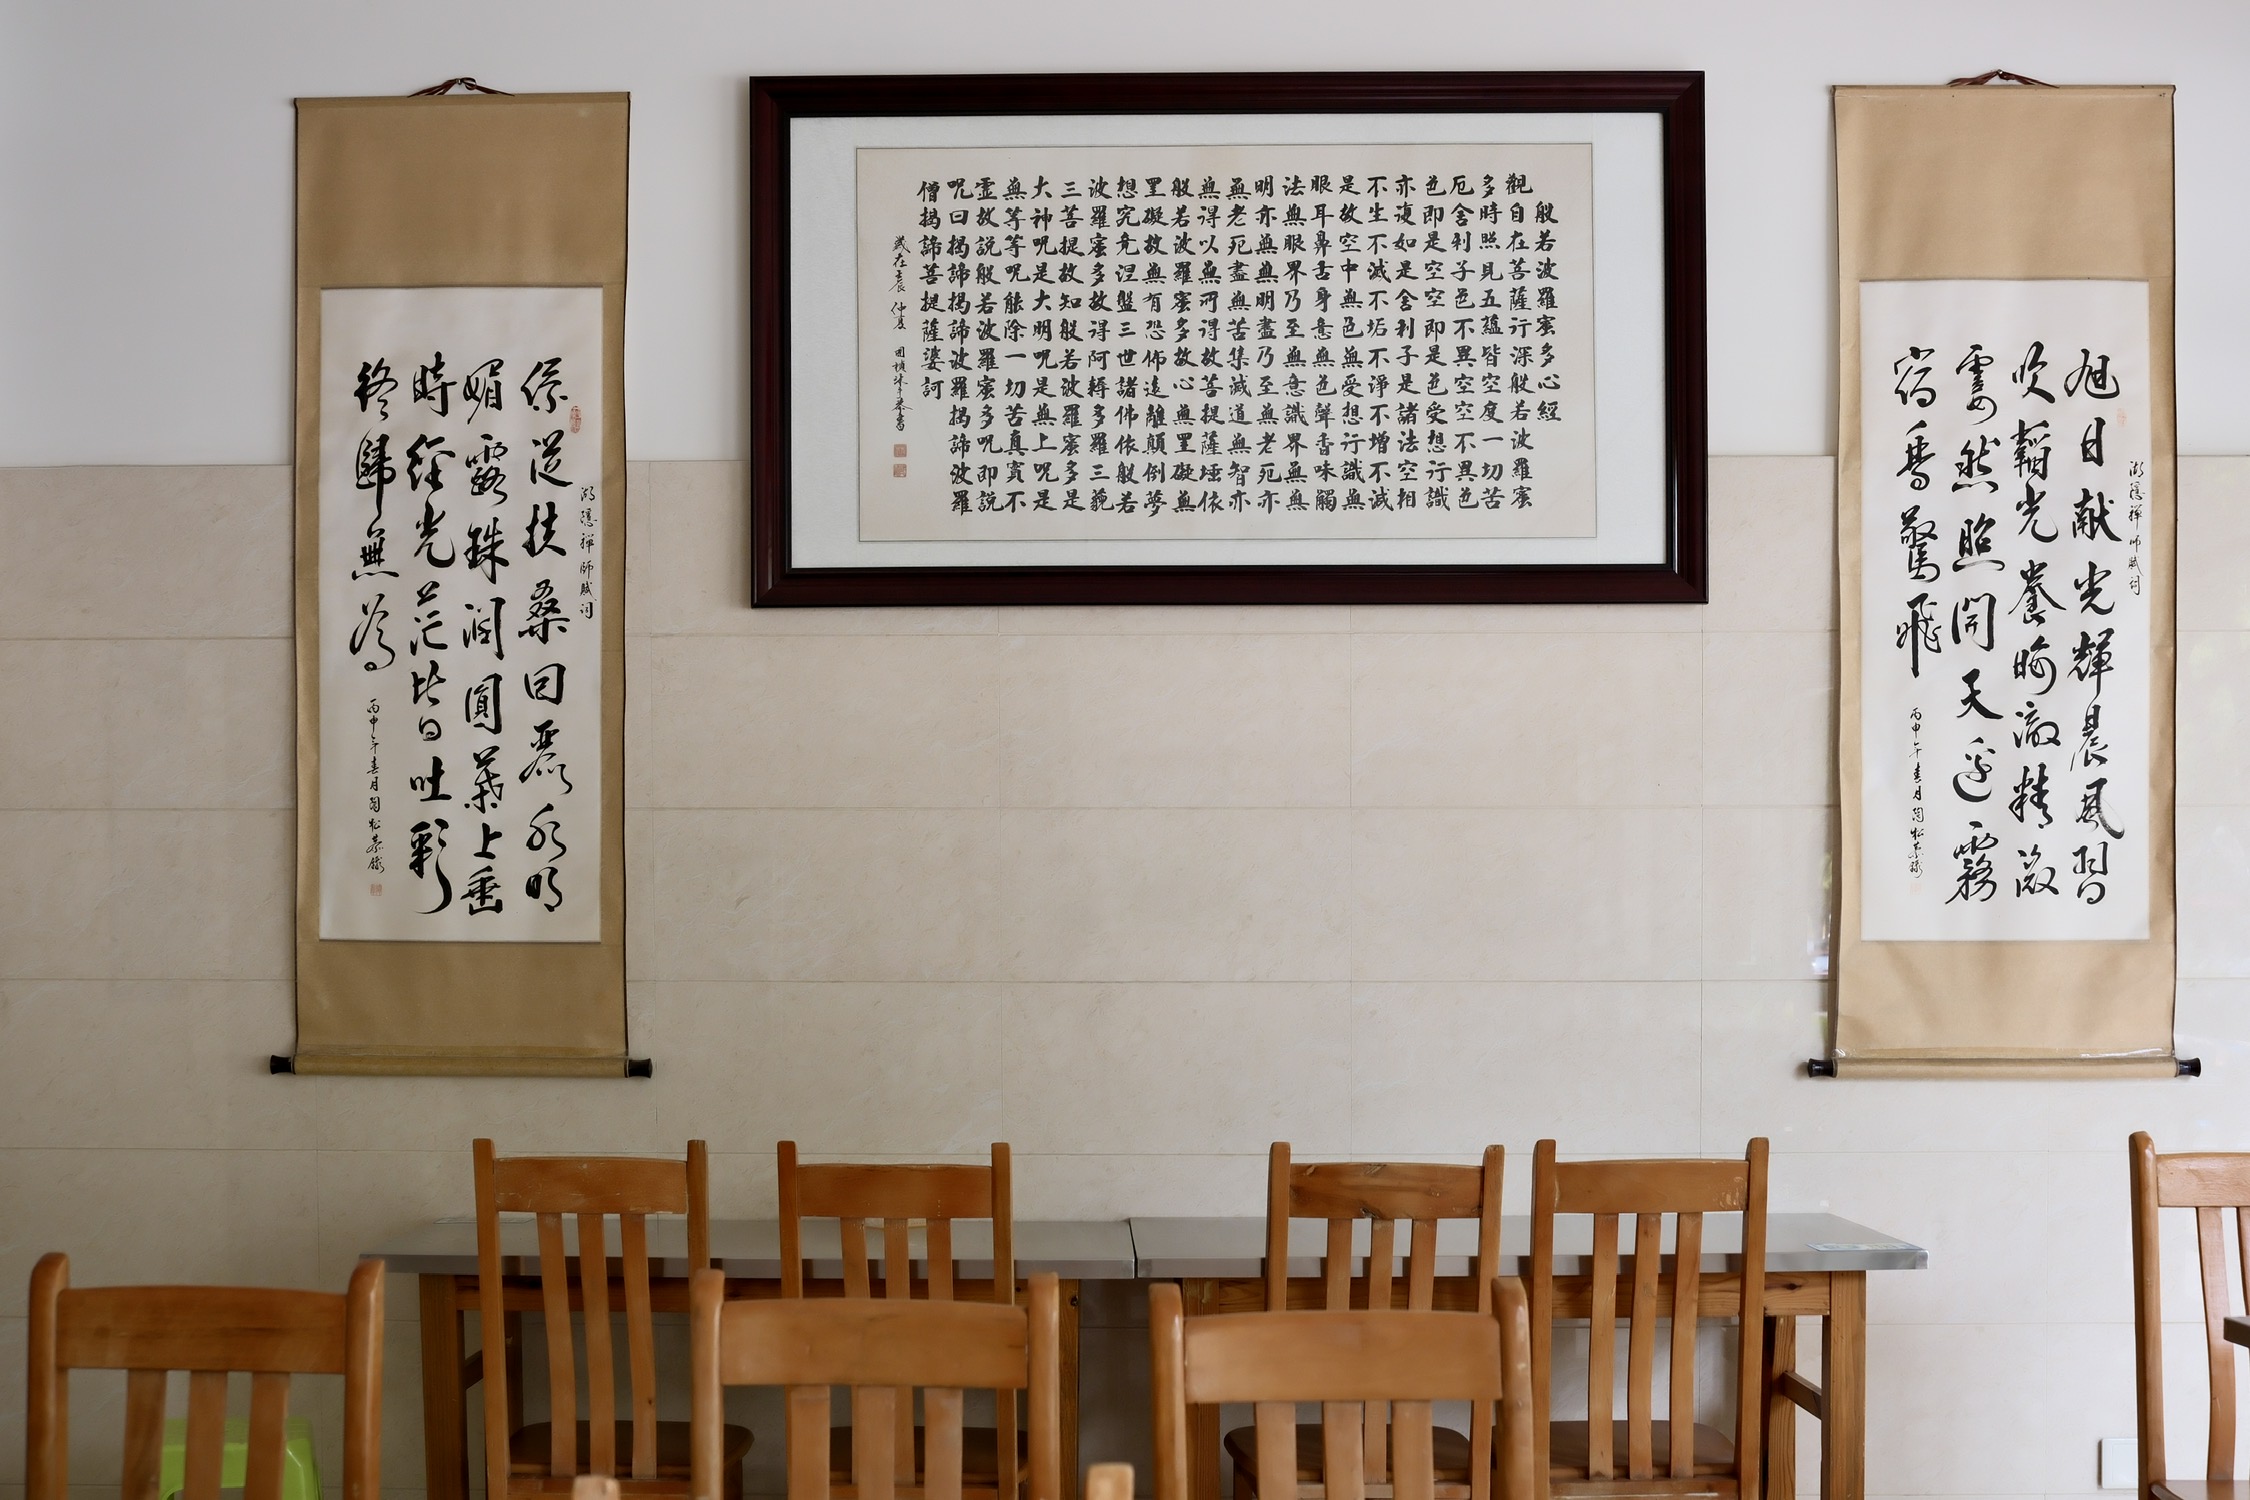 旭日献光輝晨風習
吹韜光養晦激精激
霎然照開天退霧
宿鳥驚飛
湖隱禪師賦詞
丙申年春月陶松恭錄
般若波羅蜜多心經
觀自在菩薩行深般若波羅蜜
多時照見五蘊皆空度一切苦
厄舍利子色不異空空不異色
色即是空空即是色受想行識
亦復如是舍利子是諸法空相
不生不滅不垢不淨不增不減
是故空中無色無受想行識無
眼耳鼻舌身意無色聲香味觸
法無眼界乃至無意識界無無
明亦無無明盡乃至無老死亦
無老死盡無苦集滅道無智亦
無得以無所得故菩提薩埵依
般若波羅蜜多故心無罣礙無
罣礙故無有恐怖遠離顛倒夢
想究竟涅盤三世諸佛依般若
波羅蜜多故得阿耨多羅三藐
三菩提故知般若波羅蜜多是
大神咒是大明咒是無上咒是
無等等咒能除一切苦真實不
虛故說般若波羅蜜多咒即說
咒曰揭諦揭諦波羅揭諦波羅
僧揭諦菩提薩婆訶
歲在壬辰仲夏
湖隱禪師賦詞
依從扶桑回麗永明
媚露珠潤圓葉上垂
時經光茫比日吐彩
終歸無為
丙申年春月陶松恭錄